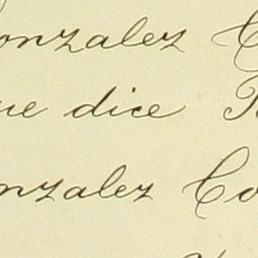 onzalez
ue dice
onzalez Co